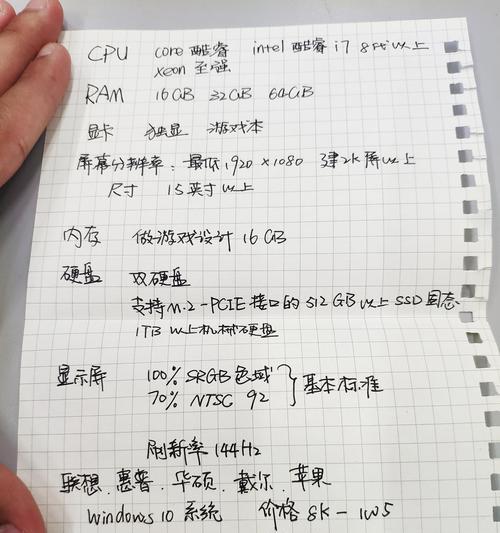 CPU core 酷睿 intel 酷睿 i7 8代以上
xeon 至强
RAM 16GB 32GB 64GB
显卡 独显 游戏本
屏幕分辨率: 最低1920×1080 建2K屏以上
尺寸 15英寸以上
内存 做游戏设计16GB
硬盘 双硬盘
支持M.2-PCIE接口的512GB以上SSD固态
1TB以上机械硬盘
显示屏 100% SRGB色域
70% NTSC 92 } 基本标准
刷新率144Hz
联想、惠普、华硕、戴尔、苹果
windows 10 系统 价格8K-1W5